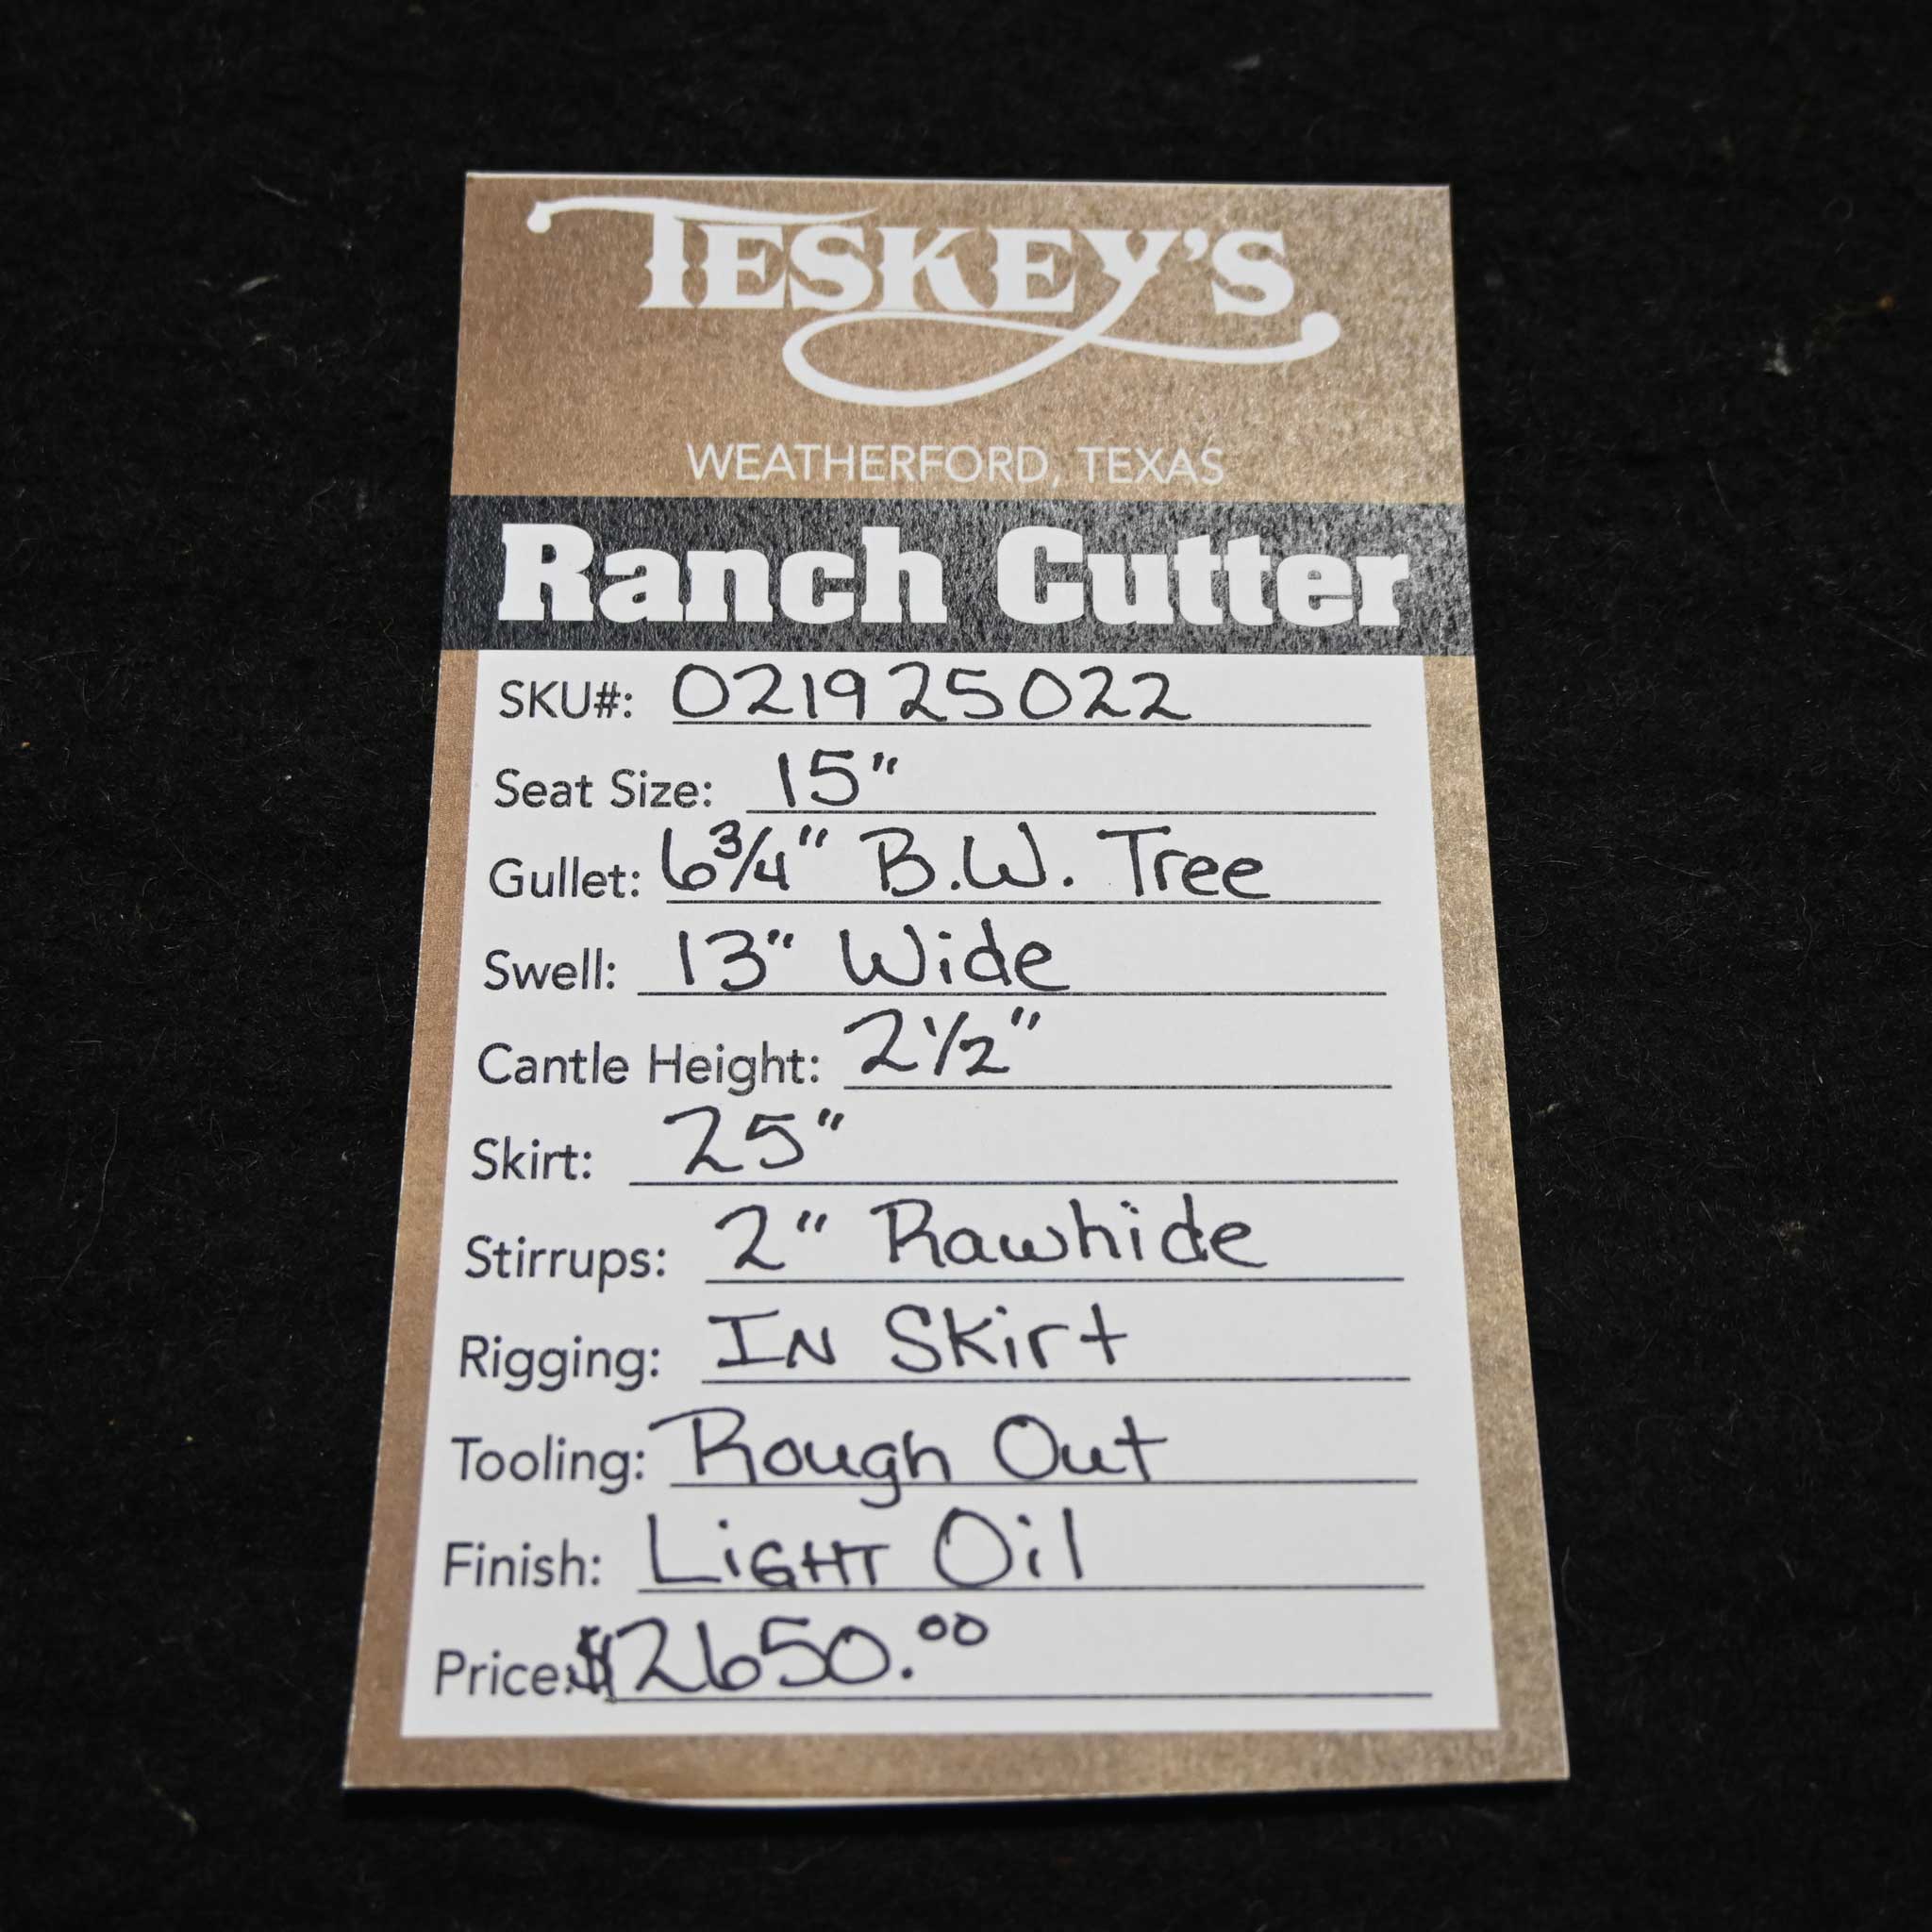 TESKEY'S
WEATHERFORD, TEXAS
Ranch Cutter
SKU#: 021925022
Seat Size: 15"
Gullet: 6 3/4" B.W. Tree
Swell: 13" Wide
Cantle Height: 2 1/2"
Skirt: 25"
Stirrups: 2" Rawhide
Rigging: IN SKirt
Tooling: Rough Out
Finish: LiGHT Oil
Price: $2650.00